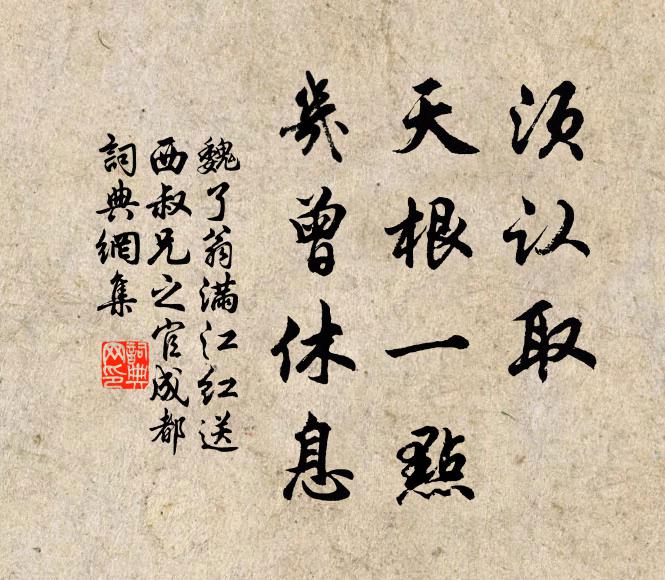 须认取
天根一點
幾曾休息
魏了翁滿江红送
西叔兄之官成都
詞典網集
詞典网印